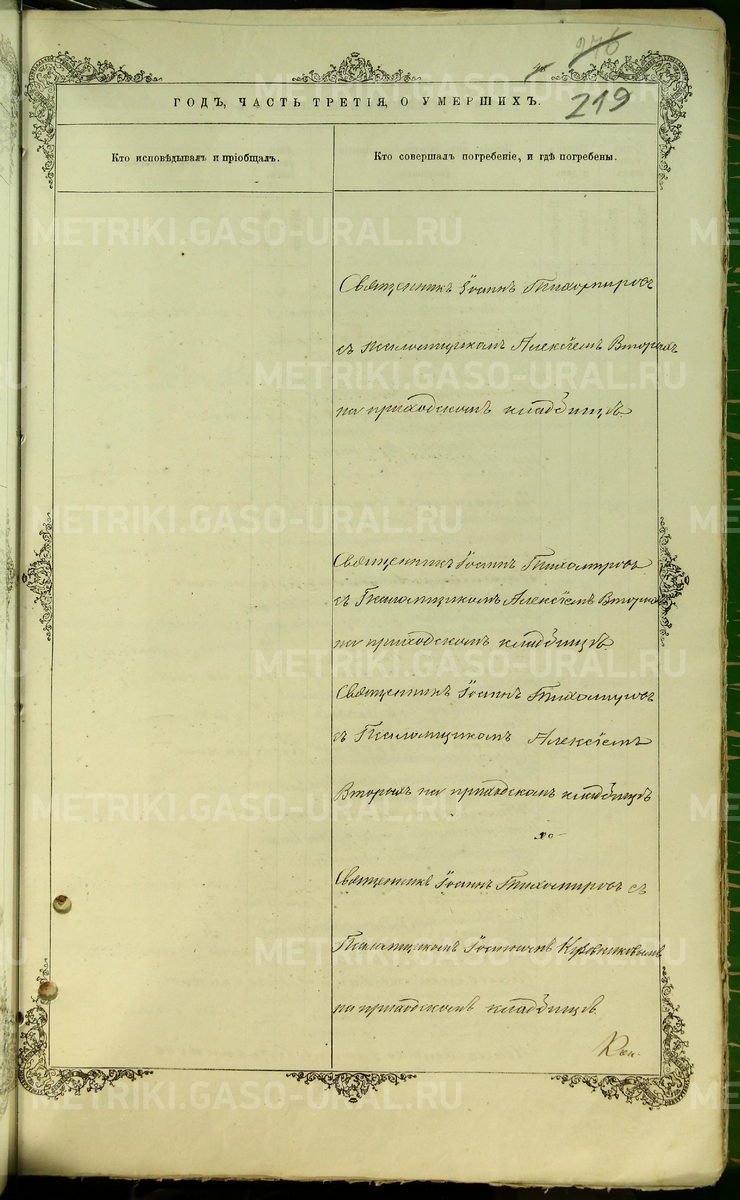 276
219
ГОДЪ, ЧАСТЬ ТРЕТІЯ, О УМЕРШИХЪ.
Кто исповѣдывалъ и пріобщалъ.
Кто совершалъ погребеніе, и гдѣ погребены.
Священникъ Іоаннъ Тихомировъ
съ Псаломщикомъ Алексіемъ Вторыхъ
на приходскомъ кладбищѣ.
Священникъ Іоаннъ Тихомировъ
съ Псаломщикомъ Алексіемъ Вторыхъ
на приходскомъ кладбищѣ
Священникъ Іоаннъ Тихомировъ
съ Псаломщикомъ Алексіемъ
Вторыхъ на приходскомъ кладбищѣ
Священникъ Іоаннъ Тихомировъ съ
Псаломщикомъ
на приходскомъ кладбищѣ.
METRIKI.GASO-URAL.RU